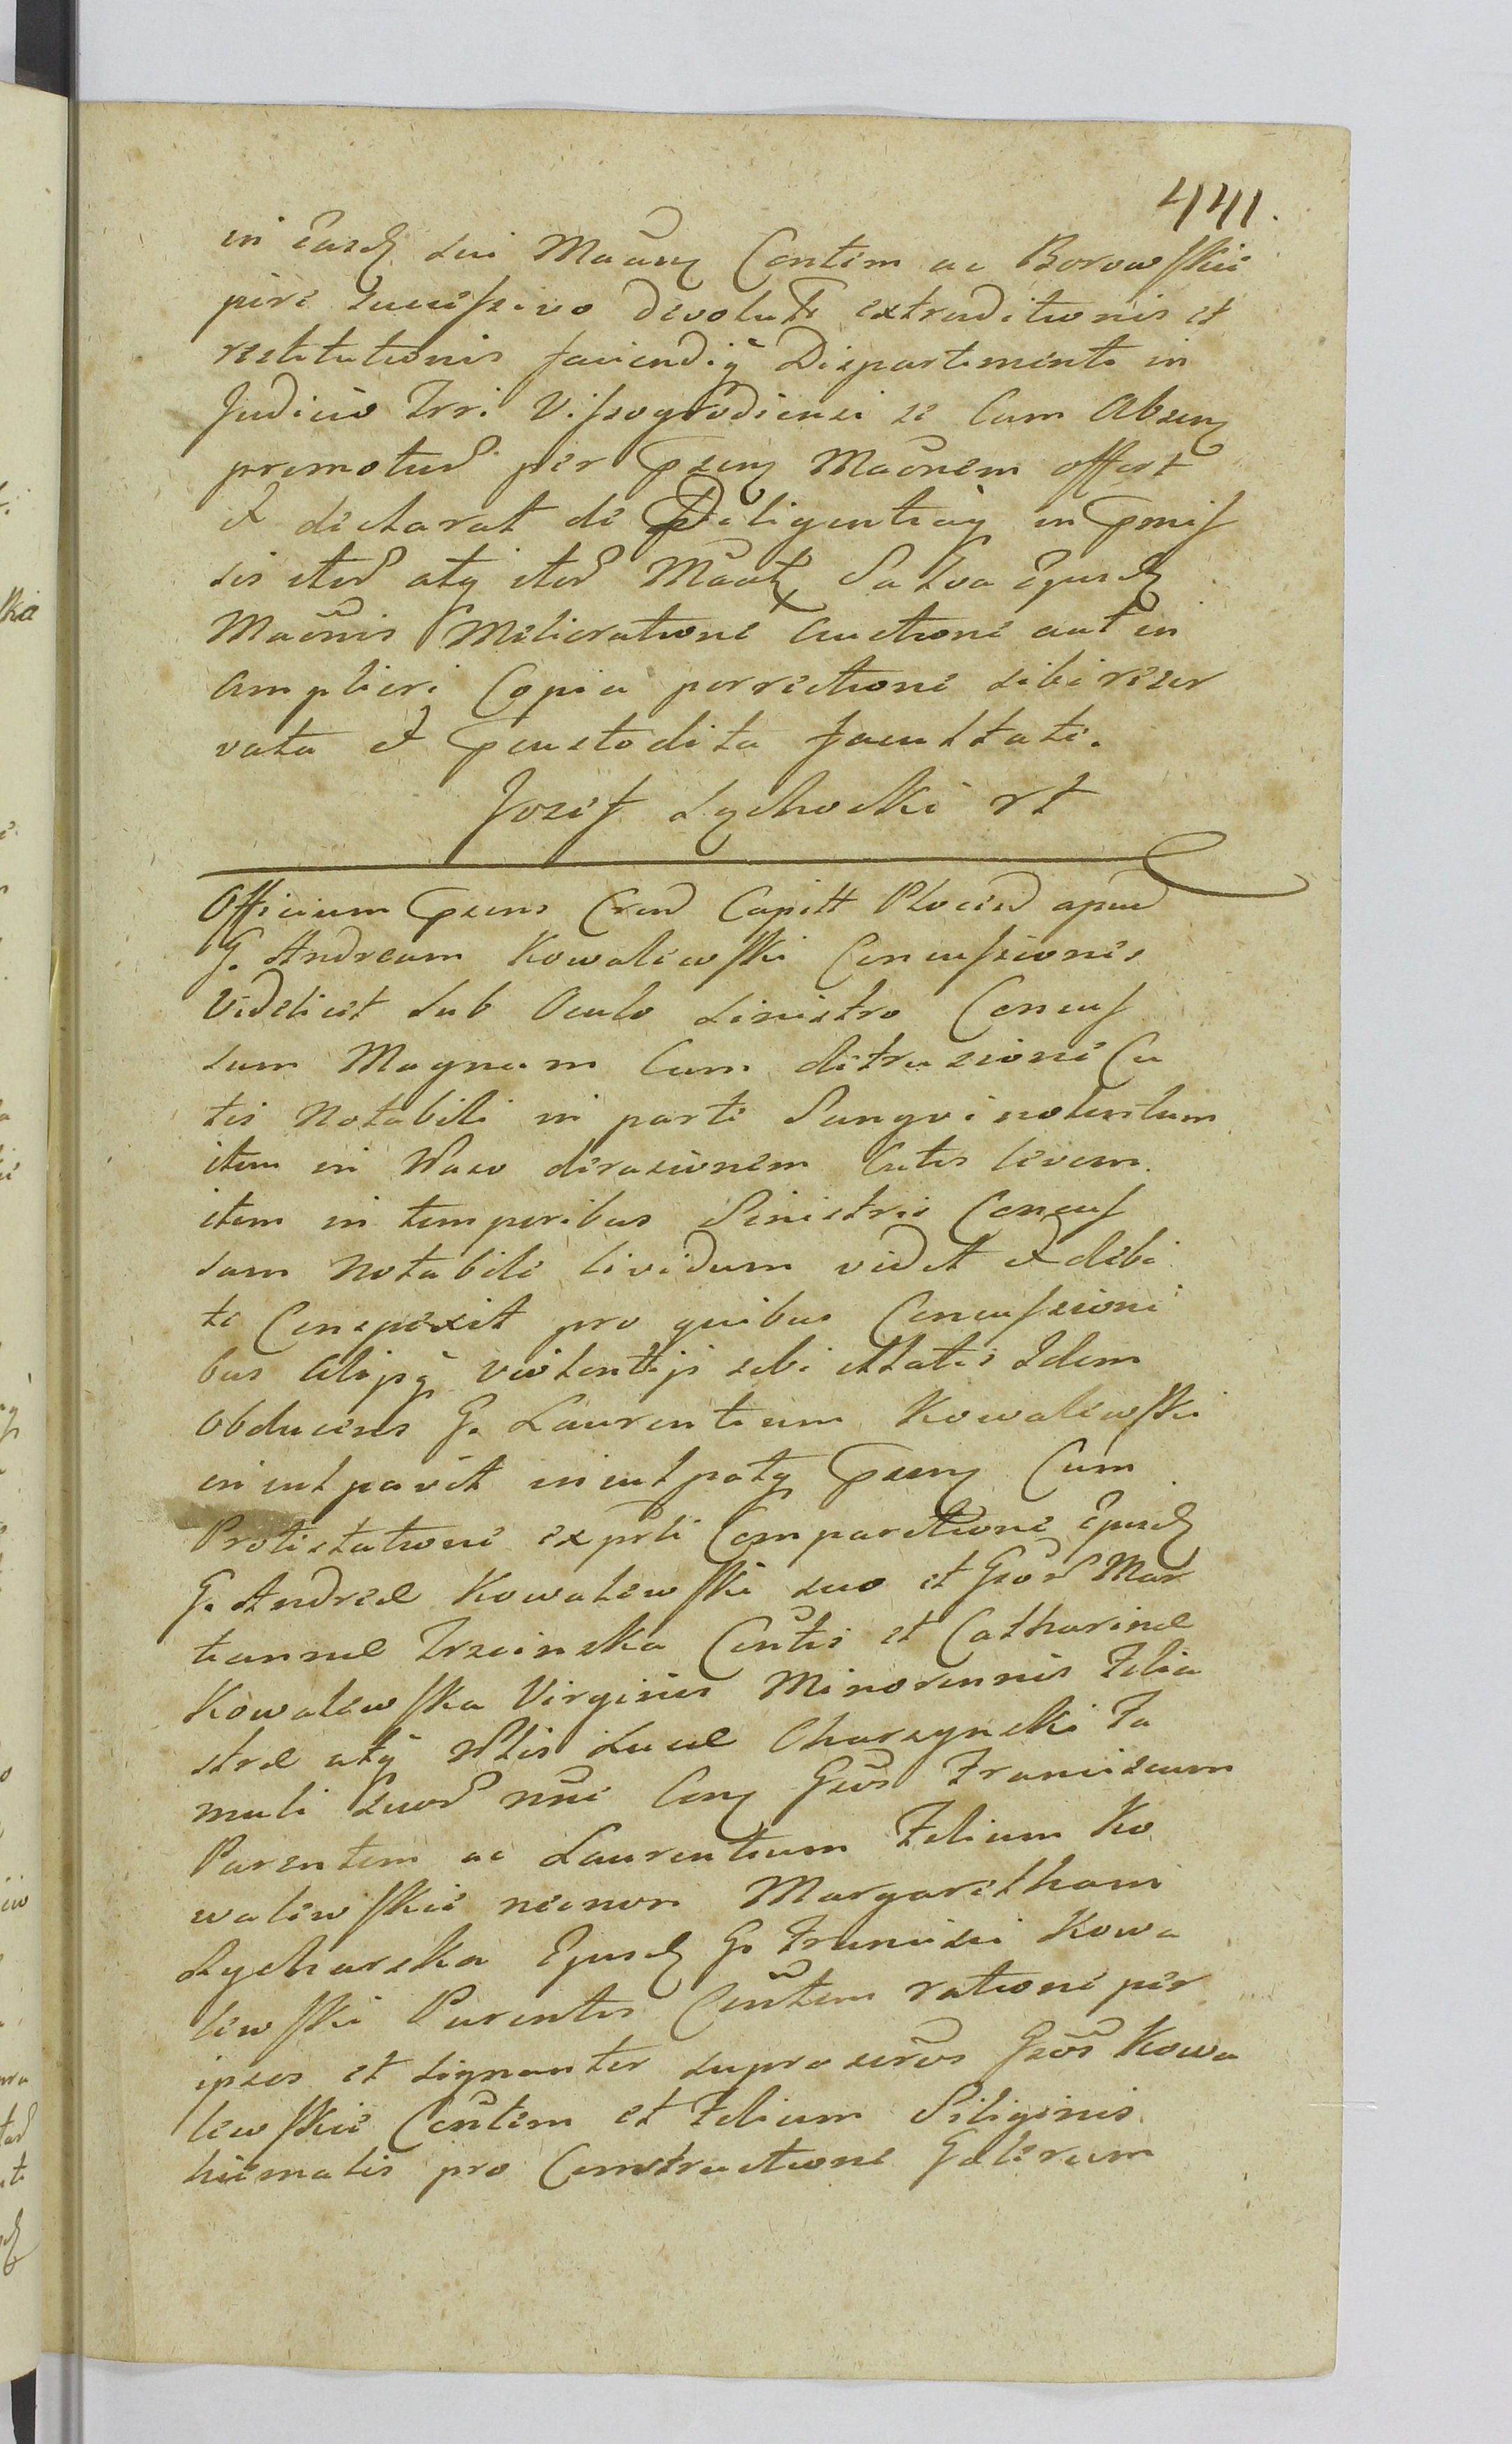 441.
in Easd. sui Maany Contem ac Borowskie
jure successivo devolut. extraditionis et
restitutionis faciendiq Dispartimenti in
Judicio Trri Vissogrodiensi se Cum Absen
promotur per Psens Maonem offert
et declarat de Diligentiaq in Pmis
sis iter atq iter Maat Salva Ejusd
Maonis Melioratione Auctione aut in
Ampliori Copia porrectione sibi reser
vata et Pcustodita facultate.
Jozef Lychocki rt
Officium Psens Crend Capitt Plocen apud
G. Andream Kowalewski Concussiones
Videlicet sub Oculo sinistro Concus
sum Magnum Cum detrusione Cu
tis Notabili in parte Sangvinolentum
item in Naso derasionem Cutis levem
item in temporibus Sinistris Concus
sum Notabile lividum vidit et debi
te Conspexit pro quibus Concussioni
bus Alijsq violentijs sibi illatis Idem
Obducens G. Laurentium Kowalewski
inculpavit inculpatq Psens Cum
Protestatione ex prti Comparitione Ejusd
G. Andreæ Kowalewski suo et Gsor Mar
iannæ Trzcinska Contis et Catharinæ
Kowalewska Virginis Minorennis Filia
stræ atq Nlis Lucæ Charzynski Fa
muli Suor nni Con Gsos Franciscum
Parentem ac Laurentium Filium Ko
walewskie necnon Margaretham
Lycharska Ejusd G. Francisci Kowa
lewski Parentis Contem ratione per
ipsos et signanter supra scros Gsos Kowa
lewskie Contem et Filium Siliginis
hiemalis pro Constructione Galerum